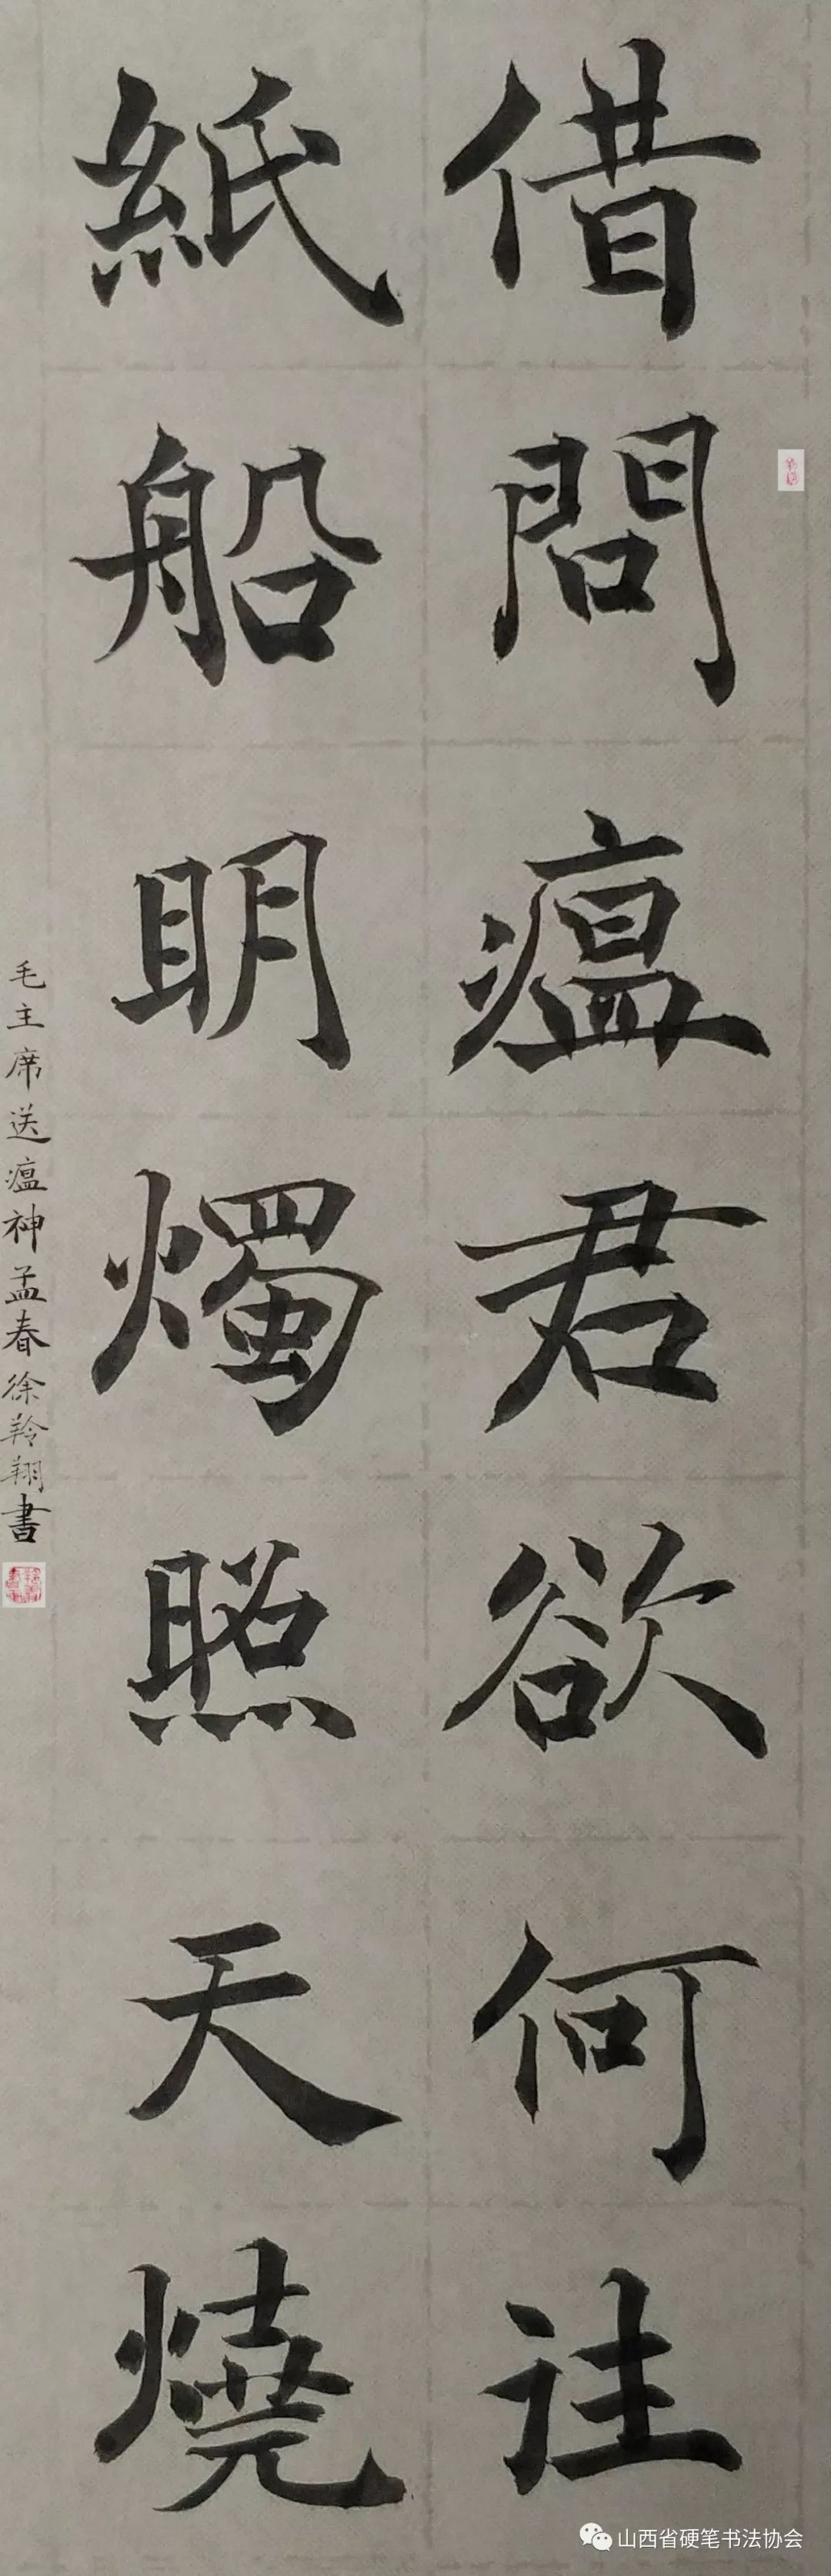 借問瘟君欲何往
紙船明燭照天燒
毛主席送瘟神孟春徐羚翔書
山西省硬笔书法协会